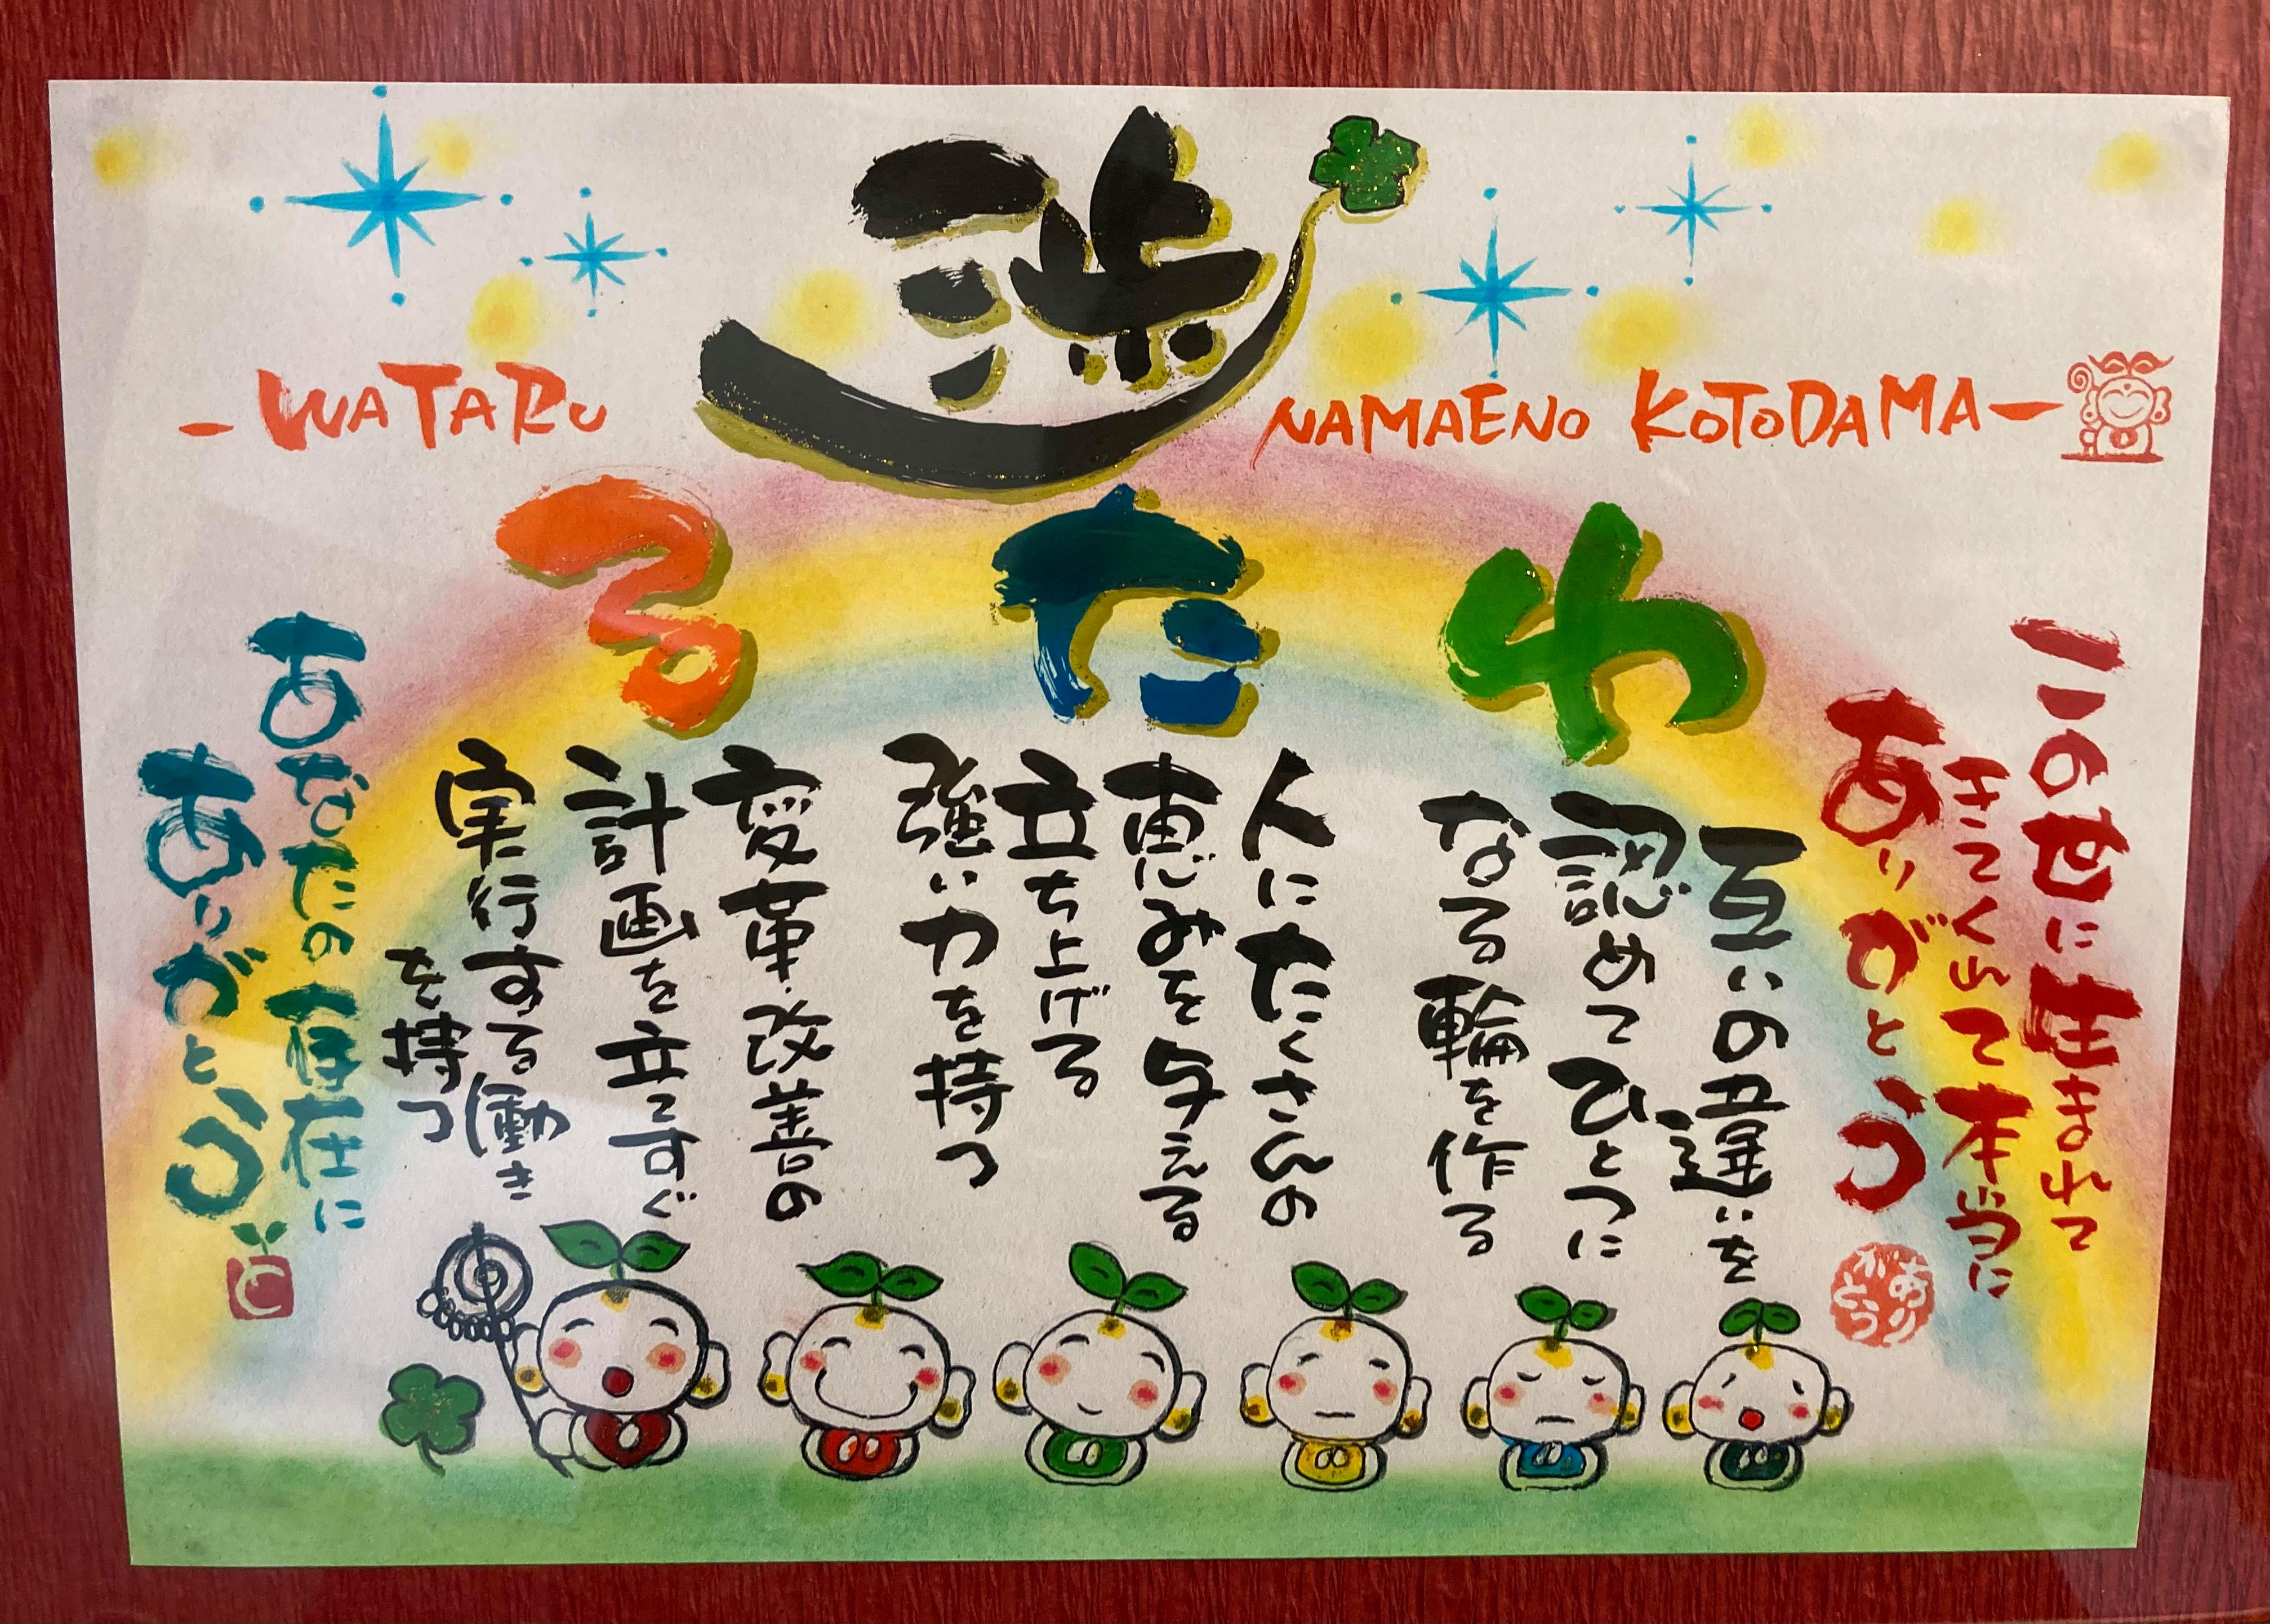 渉
-WATARU
NAMAENO KOTODAMA-
わたる
この世に生まれて
きてくれて本当に
ありがとう
ありがとう
互いの違いを
認めてひとつに
なる輪を作る
人にたくさんの
恵みを与える
立ち上げる
強い力を持つ
変革・改善の
計画を立てすぐ
実行する働き
を持つ
あなたの存在に
ありがとう